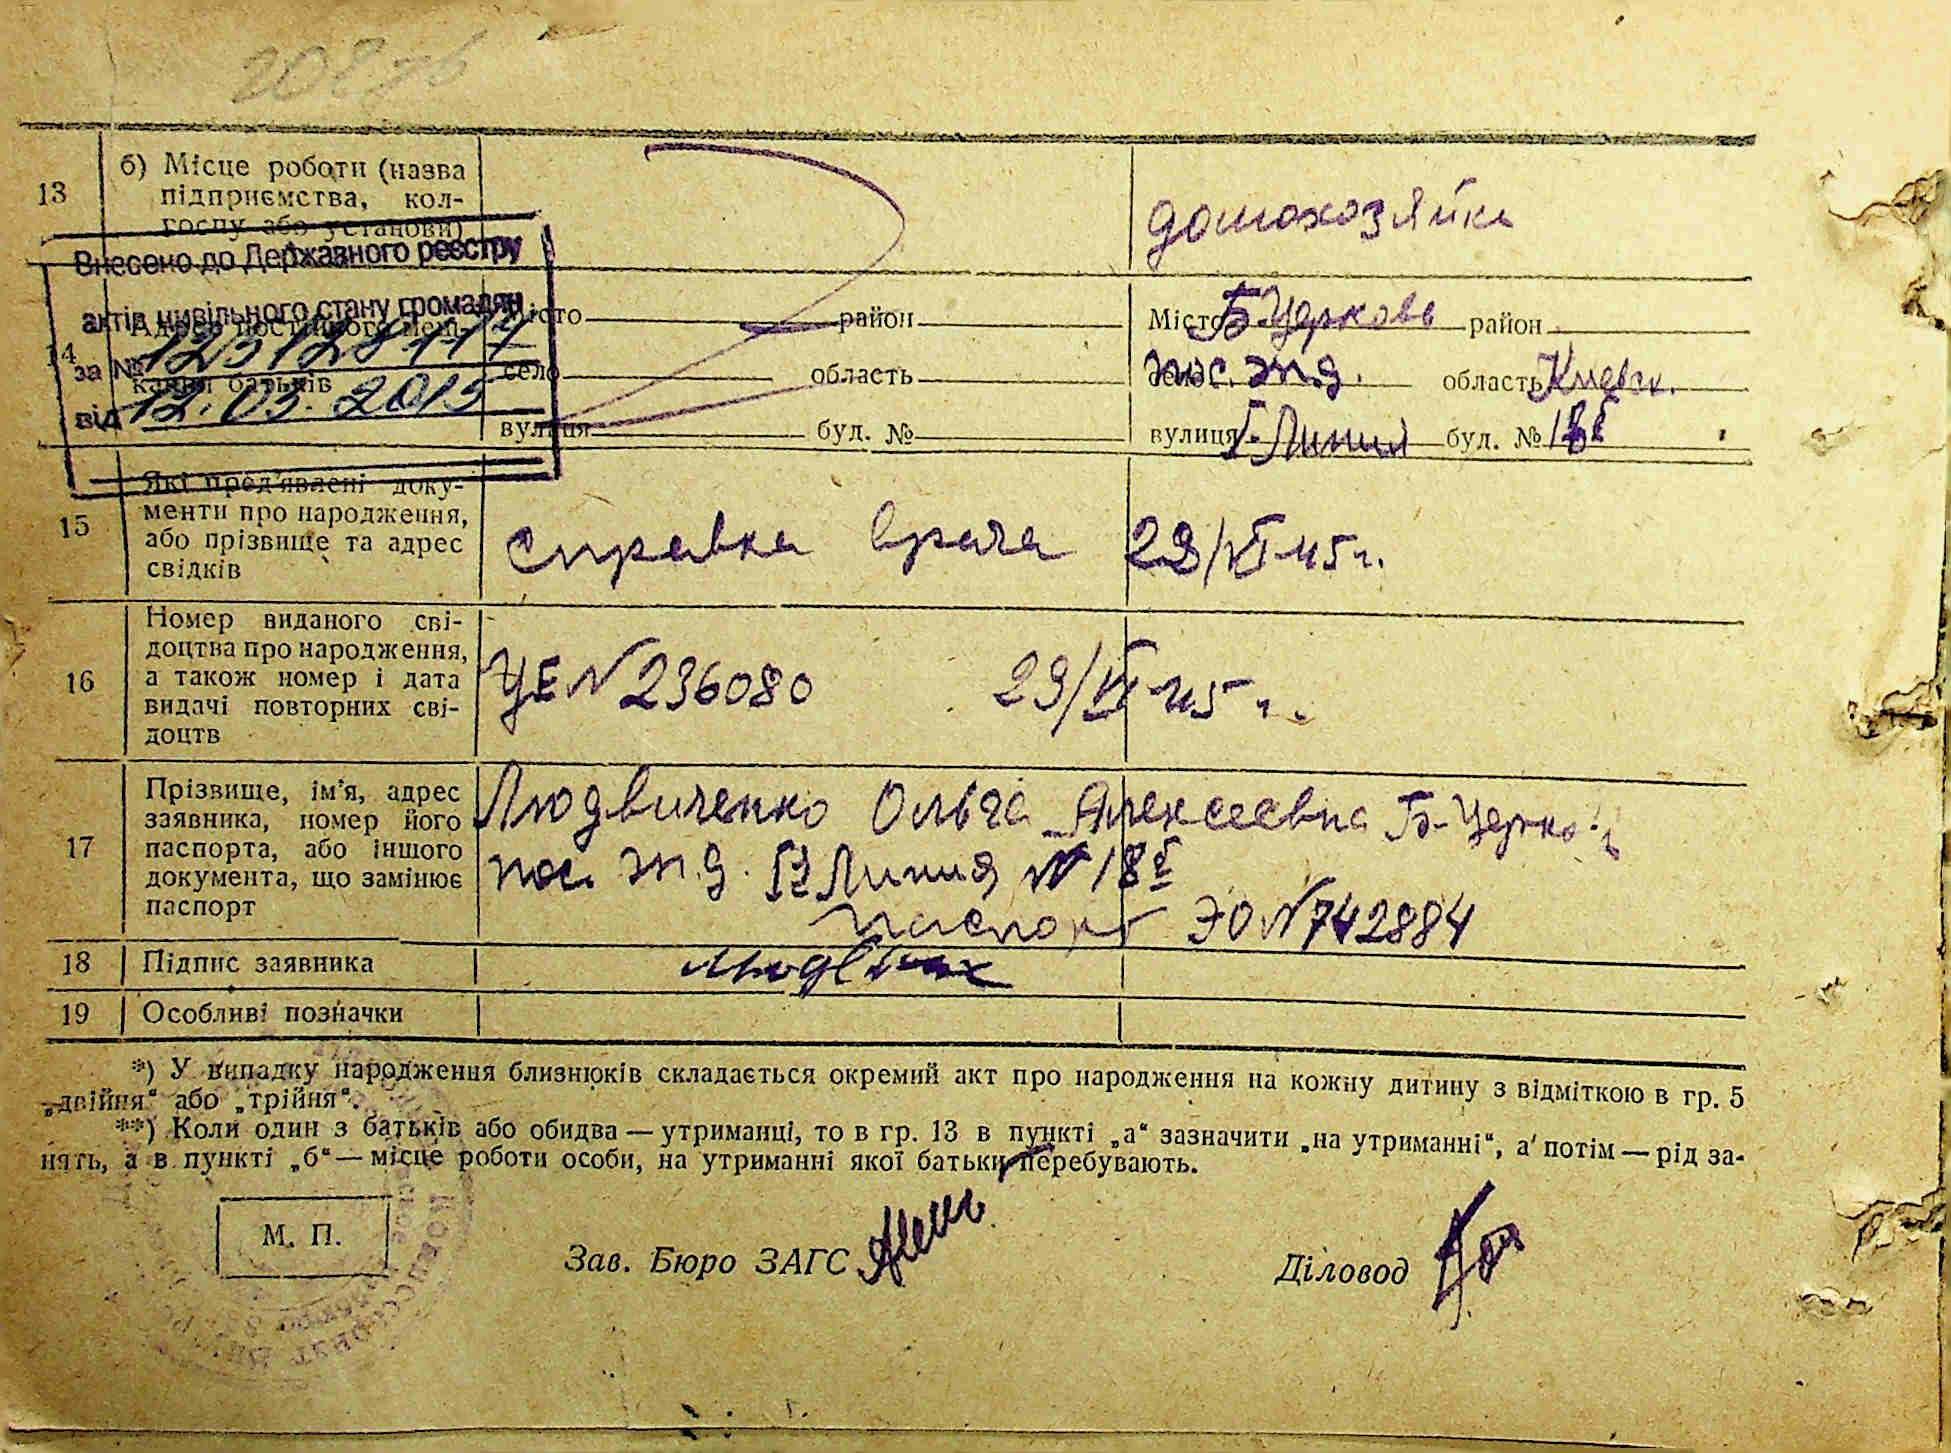 13 б) Місце роботи (назва
підприємства, кол-
госпу або установи)
домохозяйка
Внесено до Державного реєстру
актів цивільного стану громадян
за №
від 12.03.2015
14
Місто район
село область
вулиця буд. №
Місто Б-Церковь район
пос. ж.д. область Киевск.
вулиця Линия буд. № 18б
15 Які пред'явлені доку-
менти про народження,
або прізвище та адрес
свідків
справка врача 29/VI-45г.
16 Номер виданого сві-
доцтва про народження,
а також номер і дата
видачі повторних сві-
доцтв
УЕ N 236080 29/VI-45г.
17 Прізвище, ім'я, адрес
заявника, номер його
паспорта, або іншого
документа, що замінює
паспорт
Людвиченко Ольга Алексеевна Б-Церковь
пос. ж.д. Линия N 18б
паспорт ЭО N 742884
18 Підпис заявника
19 Особливі позначки
*) У випадку народження близнюків складається окремий акт про народження на кожну дитину з відміткою в гр. 5
„двійня“ або „трійня“.
**) Коли один з батьків або обидва — утриманці, то в гр. 13 в пункті „а“ зазначити „на утриманні“, а потім — рід за-
нять, а в пункті „б“ — місце роботи особи, на утриманні якої батьки перебувають.
М. П.
Зав. Бюро ЗАГС
Діловод